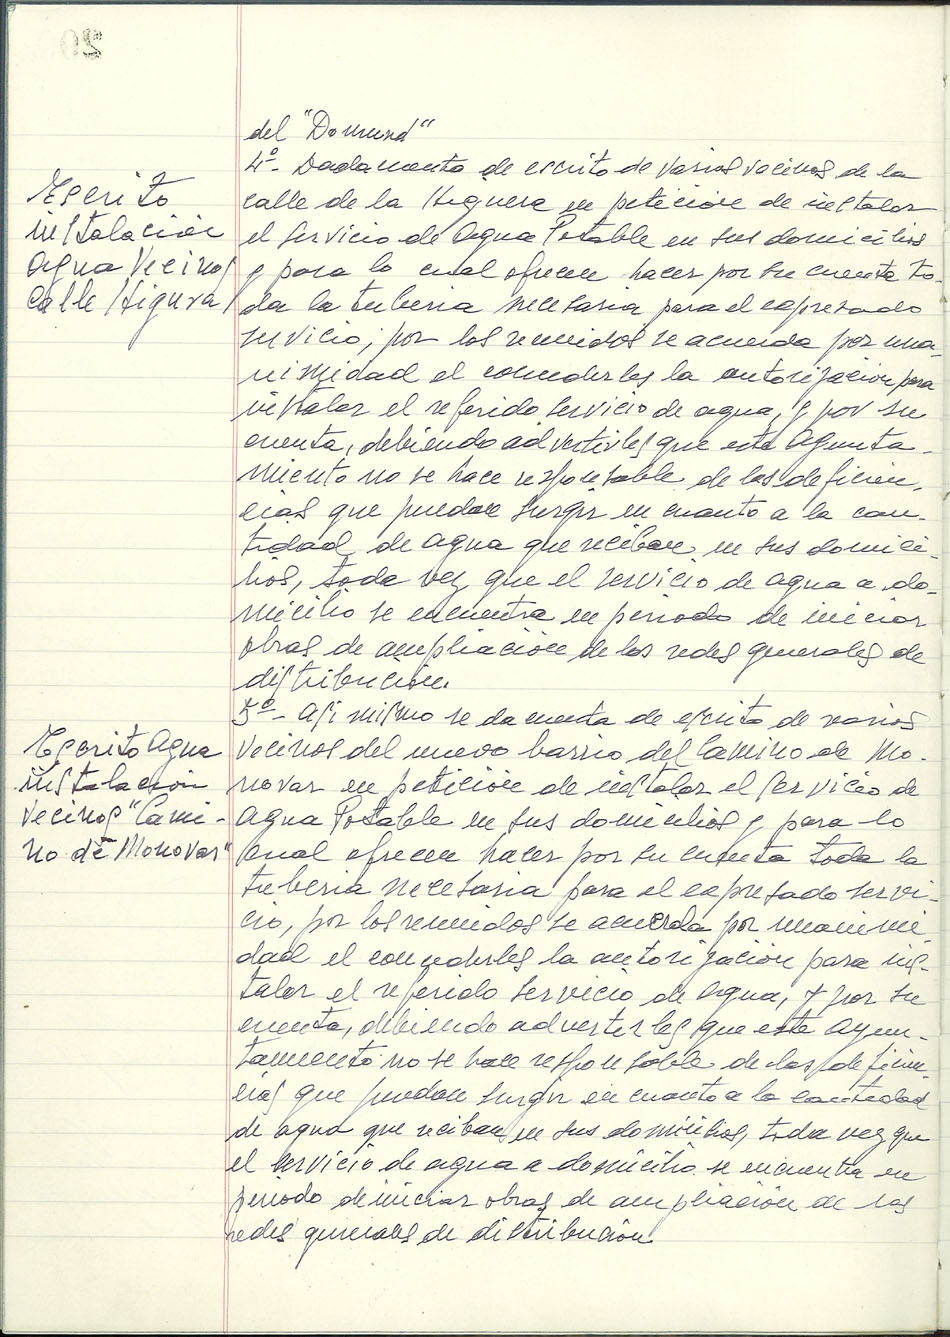 del "Domund"
4º- Dada cuenta de escrito de varios vecinos de la
Escrito
instalación
agua Vecinos
calle Higuera
calle de la Higuera en petición de instalar
el servicio de Agua Potable en sus domicilios
y para lo cual ofrecen hacer por su cuenta to-
da la tuberia necesaria para el expresado
servicio, por los reunidos se acuerda por una-
nimidad el concederles la autorización para
instalar el referido servicio de agua, y por su
cuenta, debiendo advertirles que este Ayunta-
miento no se hace responsable de las deficien-
cias que puedan surgir en cuanto a la can-
tidad de agua que reciban en sus domici-
lios, toda vez que el servicio de agua a do-
micilio se encuentra en periodo de iniciar
obras de ampliación de las redes generales de
distribución.
5º- Asi mismo se da cuenta de escrito de varios
Escrito Agua
instalación
vecinos "Cami-
no de Monovar"
vecinos del nuevo barrio del Camino de Mo-
novar en petición de instalar el servicio de
Agua Potable en sus domicilios y para lo
cual ofrecen hacer por su cuenta toda la
tuberia necesaria para el expresado servi-
cio, por los reunidos se acuerda por unanimi
dad el concederles la autorización para ins-
talar el referido servicio de agua, y por su
cuenta, debiendo advertirles que este Ayun-
tamiento no se hace responsable de las deficien-
cias que puedan surgir en cuanto a la cantidad
de agua que reciban en sus domicilios, toda vez que
el servicio de agua a domicilio se encuentra en
periodo de iniciar obras de ampliación de las
redes generales de distribución.